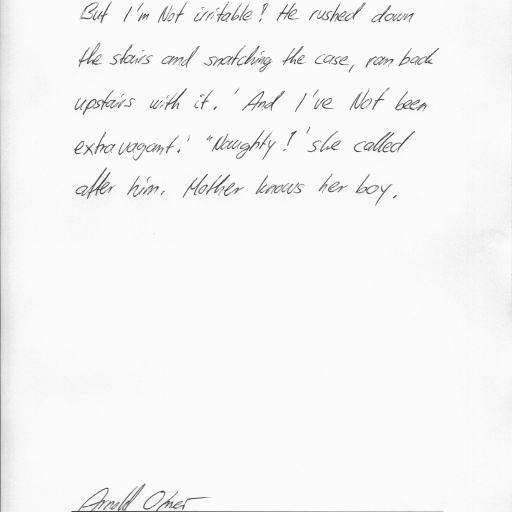 But I'm Not irritable! He rushed down
the stairs and snatching the case, ran back
upstairs with it. ' And I've Not been
extravagant.' "Naughty!' she called
after him. Mother knows her boy.
Arnold